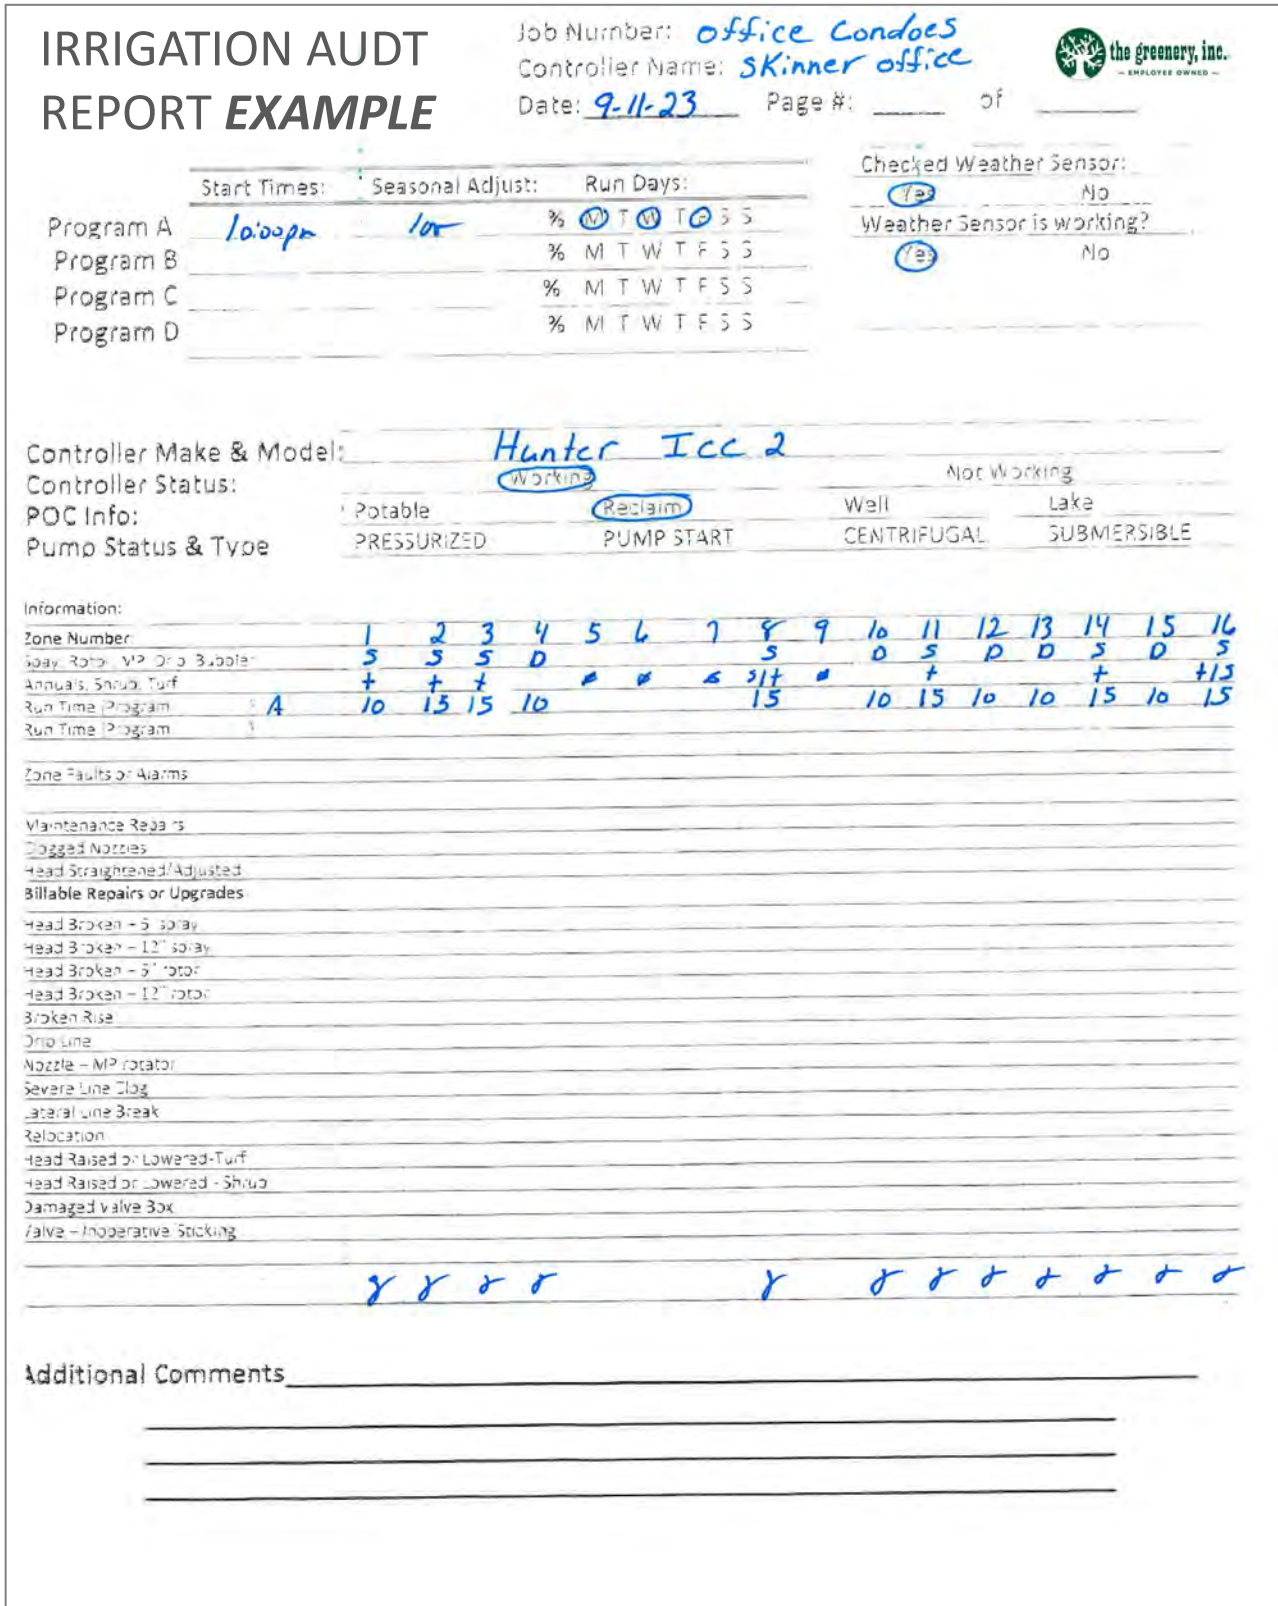 IRRIGATION AUDT
REPORT EXAMPLE
Job Number: office Condoes
Controller Name: SKinner office
Date: 9-11-23 Page #: ____ of ____
the greenery, inc.
EMPLOYEE OWNED
Start Times: Seasonal Adjust: Run Days:
Program A 10:00pm 100 % M T W T F S S
Program B % M T W T F S S
Program C % M T W T F S S
Program D % M T W T F S S
Checked Weather Sensor:
Yes No
Weather Sensor is working?
Yes No
Controller Make & Model: Hunter Icc 2
Controller Status: Working Not Working
POC Info: Potable Reclaim Well Lake
Pump Status & Type PRESSURIZED PUMP START CENTRIFUGAL SUBMERSIBLE
Information:
Zone Number 1 2 3 4 5 6 7 8 9 10 11 12 13 14 15 16
Spay, Rotor, MP, Drip, Bubbler S S S D S D S D D S D S
Annuals, Shrub, Turf t t t s/t t t t/s
Run Time Program A 10 15 15 10 15 10 15 10 10 15 10 15
Run Time Program
Zone Faults or Alarms
Maintenance Repairs
Clogged Nozzles
Head Straightened/Adjusted
Billable Repairs or Upgrades
Head Broken – 6" spray
Head Broken – 12" spray
Head Broken – 6" rotor
Head Broken – 12" rotor
Broken Rise
Drip Line
Nozzle – MP rotator
Severe Line Clog
Lateral Line Break
Relocation
Head Raised or Lowered-Turf
Head Raised or Lowered - Shrub
Damaged Valve Box
Valve – Inoperative Sticking
Additional Comments